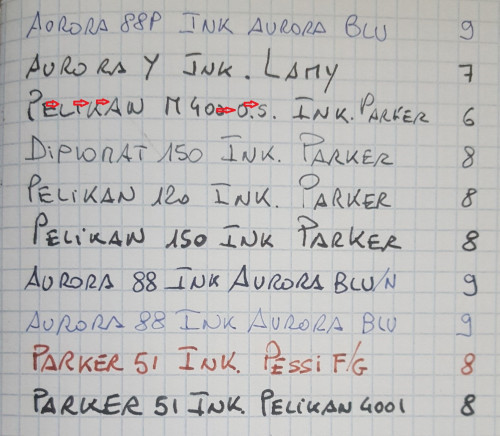 AURORA 88P INK AURORA BLU 9
AURORA Y INK. LAMY 7
PELIKAN M400 O.S. INK. PARKER 6
DIPLOMAT 150 INK. PARKER 8
PELIKAN 120 INK. PARKER 8
PELIKAN 150 INK PARKER 8
AURORA 88 INK AURORA BLU/N 9
AURORA 88 INK AURORA BLU 9
PARKER 51 INK. PESSI F/G 8
PARKER 51 INK. PELIKAN 4001 8